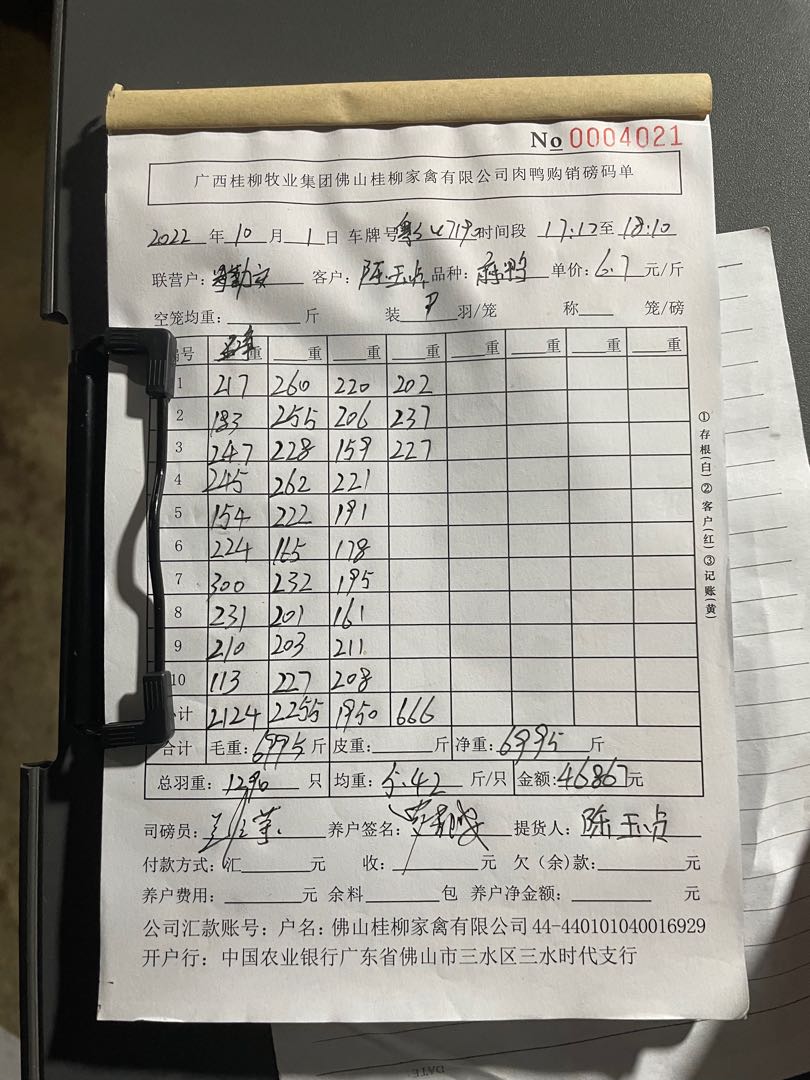 No 0004021
广西桂柳牧业集团佛山桂柳家禽有限公司肉鸭购销磅码单
2022 年 10 月 1 日 车牌号 时间段 17:17 至 18:10
联营户: 客户: 陈玉贞 品种: 麻鸭 单价: 6.7 元/斤
空笼均重: 斤 装 羽/笼 称 笼/磅
编号 重 重 重 重 重 重 重 重
1 217 260 220 202
2 183 255 206 237
3 247 228 159 227
4 245 262 221
5 154 222 191
6 224 165 178
7 300 232 195
8 231 201 161
9 210 203 211
10 113 227 208
小计 2124 2255 1950 666
合计 毛重: 6995 斤 皮重: 斤 净重: 6995 斤
总羽重: 1290 只 均重: 5.42 斤/只 金额: 46867 元
司磅员: 养户签名: 提货人: 陈玉贞
付款方式: 汇 元 收: 元 欠(余)款: 元
养户费用: 元 余料 包 养户净金额: 元
公司汇款账号: 户名: 佛山桂柳家禽有限公司 44-440101040016929
开户行: 中国农业银行广东省佛山市三水区三水时代支行
①存根(白)②客户(红)③记账(黄)
DATE: